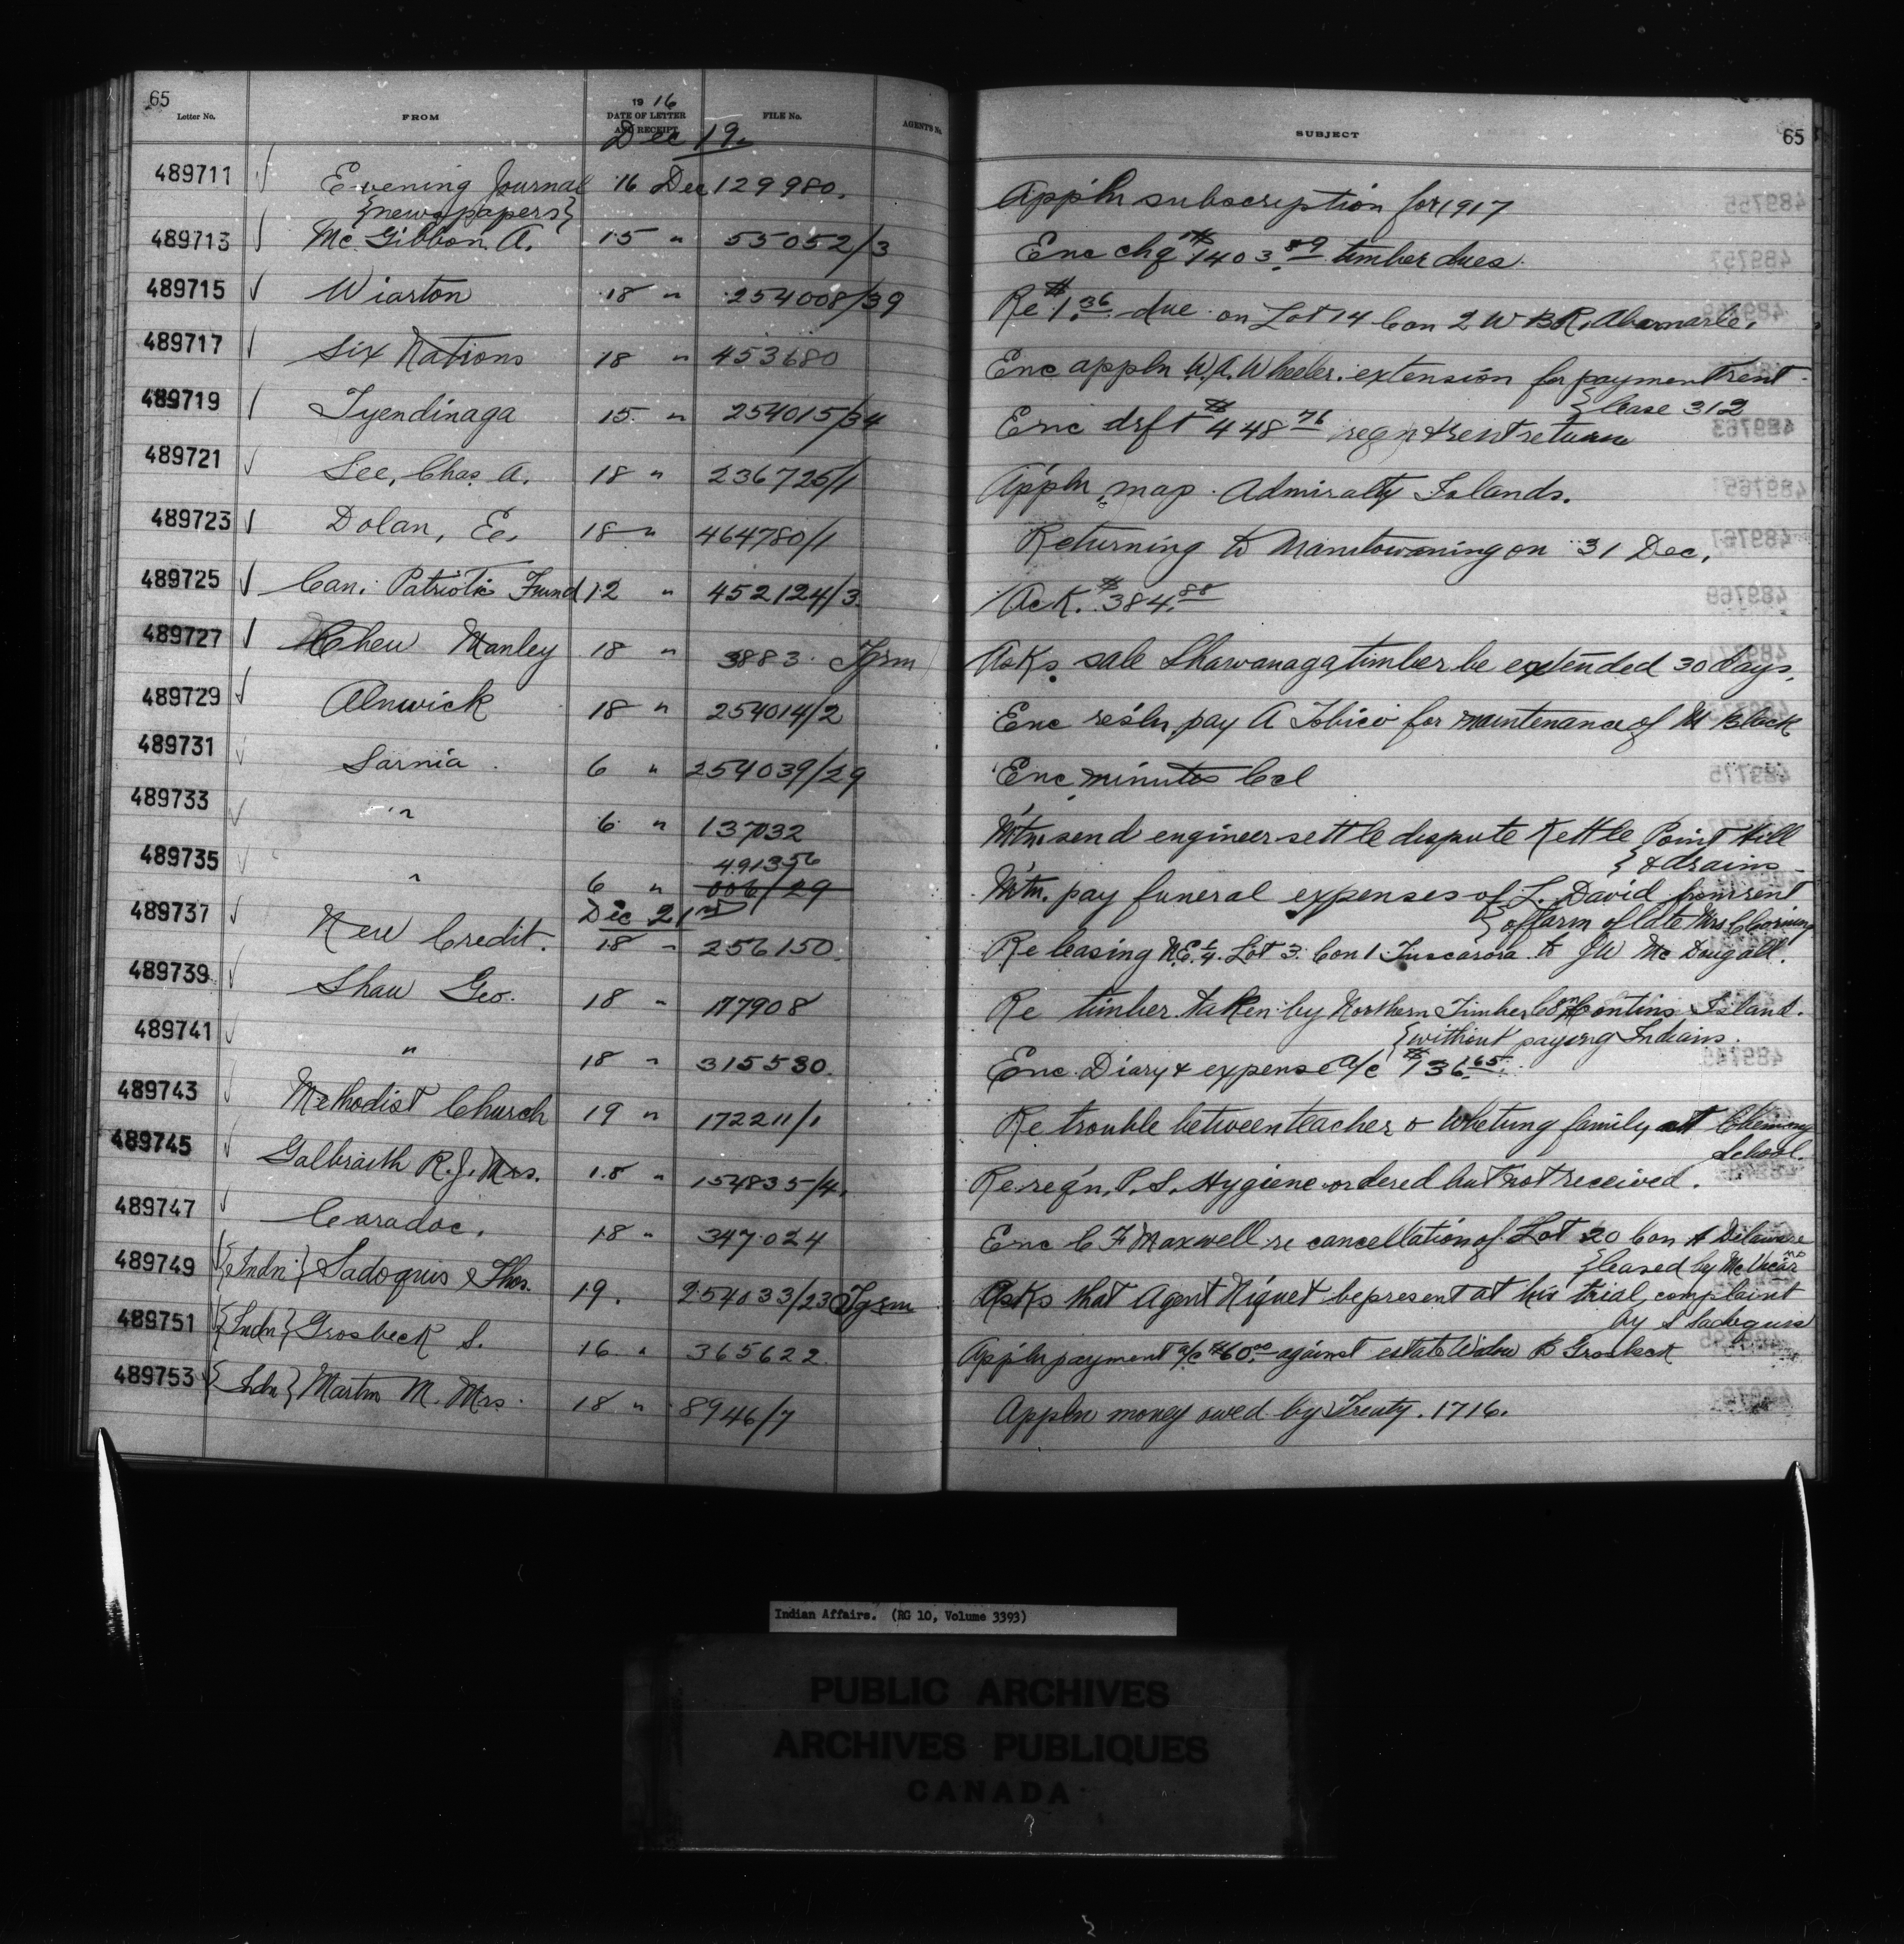 65
Letter No. FROM 19 16 DATE OF LETTER AND RECEIPT FILE No. AGENT'S No. SUBJECT 65
Dec 19.
489711 ✓ Evening Journal 16 Dec 129980. Appln subscription for 1917
{newspapers}
489713 ✓ Mc Gibbon, A. 15 " 55052/3 Enc chq # 1403.89 timber dues.
489715 ✓ Wiarton 18 " 254008/39 Re $1.36 due on Lot 14 Con 2 W B.R. Abarmarle.
489717 ✓ Six Nations 18 " 453680 Enc appln W.A. Wheeler. extension for payment rent
{lease 312
489719 ✓ Tyendinaga 15 " 254015/34 Enc drft $448 76 reqn & rent return
489721 ✓ Lee, Chas. A. 18 " 236725/1 Appln map Admiralty Islands.
489723 ✓ Dolan, E. 18 " 464780/1 Returning to Manitowaning on 31 Dec.
489725 ✓ Can. Patriotic Fund 12 " 452124/3 Ack. $384.88
489727 ✓ Chew Manley 18 " 3883 Tgrm Asks sale Shawanaga timber be extended 30 days.
489729 ✓ Alnwick 18 " 254014/2 Enc resln pay A Tobico for maintenance of M Black
489731 ✓ Sarnia 6 " 254039/29 Enc minutes Ccl
489733 ✓ " 6 " 137032 Mtn send engineer settle dispute Kettle Point Hill
{& drains
491356
489735 ✓ " 6 " 006/29 Mtn. pay funeral expenses of L. David from rent
{of farm of late Mrs
Dec 21st
489737 ✓ New Credit. 18 " 256150. Re leasing N.E. ¼ Lot 3 Con 1 Tuscarora to JW Mc Dougall.
489739 ✓ Shaw Geo. 18 " 177908 Re timber taken by Northern Timber Co on Pontins Island.
{without paying Indians.
489741 ✓ " 18 " 315530. Enc Diary & expense a/c $136.65
489743 ✓ Methodist Church 19 " 172211/1 Re trouble between teacher & Whetung family at Chemong
School.
489745 ✓ Galbraith R.J. Mrs. 18 " 154835/4. Re reqn. P.S. Hygiene ordered but not received.
489747 ✓ Caradoc. 18 " 347024 Enc C F Maxwell re cancellation of Lot 20 Con A Delaware
{leased by McVicar
489749 ✓ {Indn} Sadoquis Thos. 19. 254033/23 Tgrm Asks that Agent Niquet be present at his trial, complaint
by S Sadoquis
489751 {Indn} Grosbeck S. 16 " 365622 Appln payment a/c $60.00 against estate Widow B Grosbeck
489753 ✓ {Indn} Martin M. Mrs. 18 " 8946/7 Appln money owed by Treaty. 1716.
Indian Affairs. (RG 10, Volume 3393)
PUBLIC ARCHIVES
ARCHIVES PUBLIQUES
CANADA